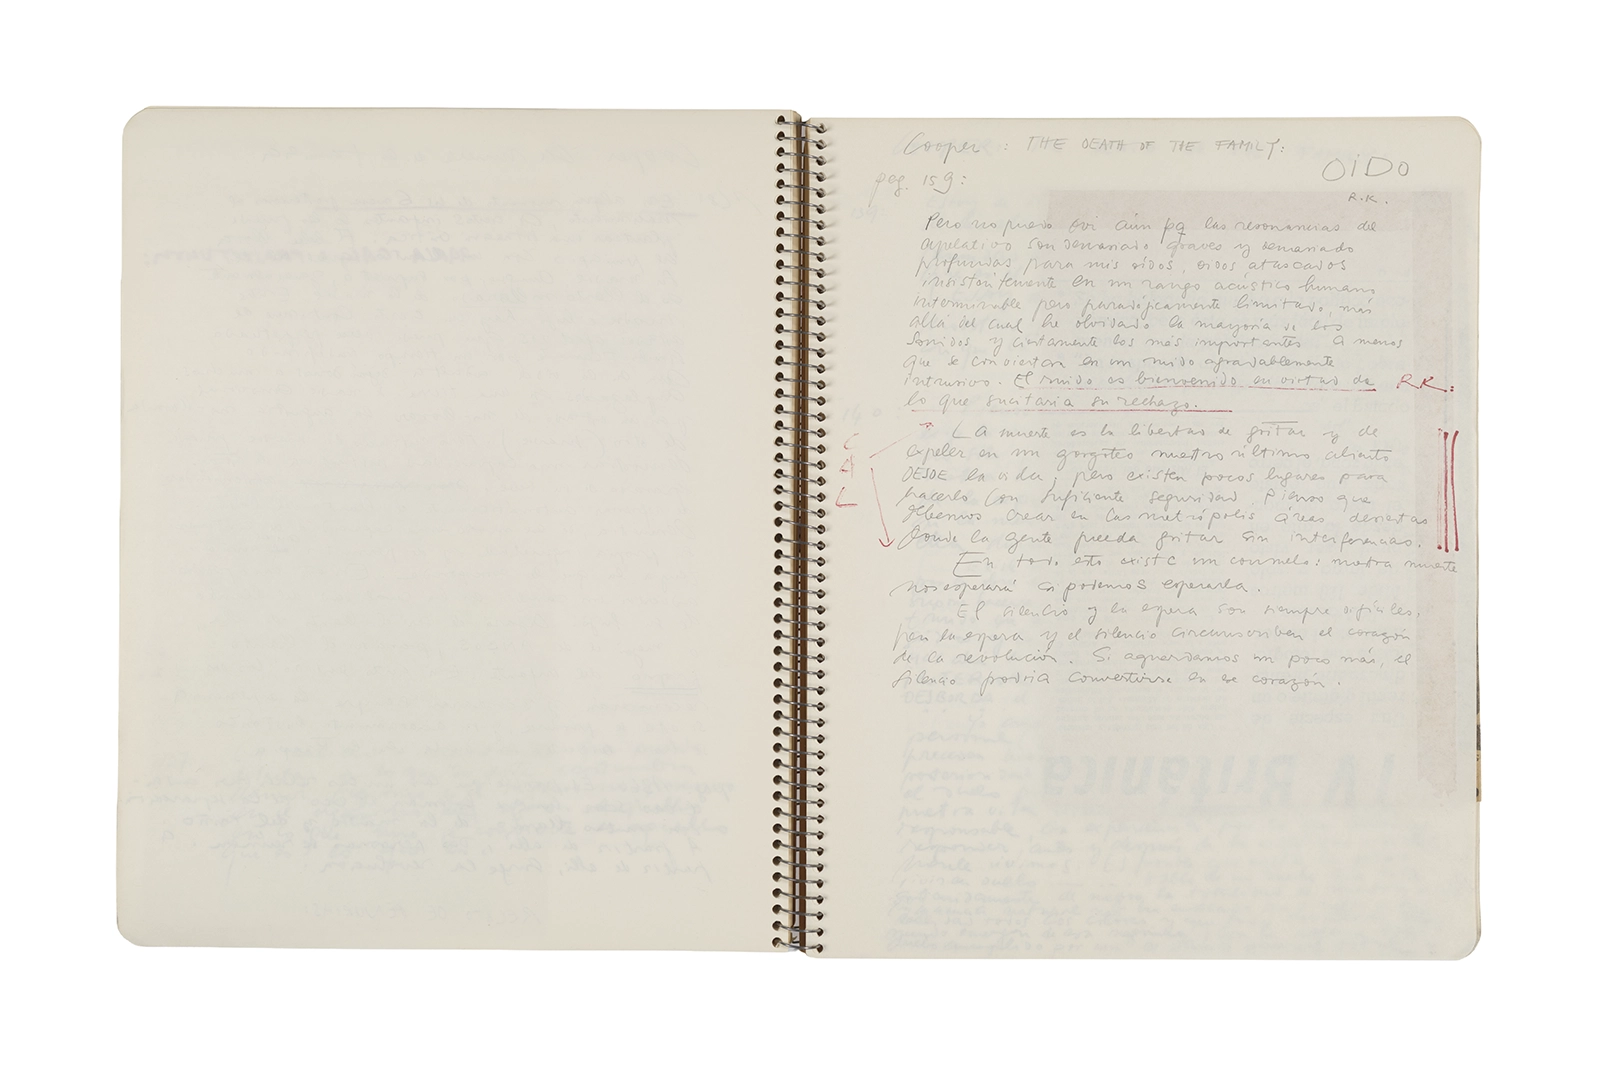 Cooper : THE DEATH OF THE FAMILY:
OIDO
pag. 159:
R.K.
Pero no puedo oir aún pq las resonancias del
apelativo son demasiado graves y demasiado
profundas para mis oídos, oidos atascados
insistentemente en un rango acústico humano
interminable pero paradójicamente limitado, más
allá del cual he olvidado la mayoría de los
sonidos y ciertamente los más importantes. A menos
que se conviertan en un ruido agradablemente
intrusivo. El ruido es bienvenido en virtud de R.K.
lo que sucitaria su rechazo.
La muerte es la libertad de gritar y de
expeler en un gorgoteo nuestro último aliento
DESDE la vida, pero existen pocos lugares para
hacerlo con suficiente seguridad. Pienso que
debemos crear en las metrópolis áreas desiertas
donde la gente pueda gritar sin interferencias.
CAL
En todo esto existe un consuelo: nuestra muerte
nos esperará si podemos esperarla.
El silencio y la espera son siempre difíciles,
pero la espera y el silencio circunscriben el corazón
de la revolución. Si aguardamos un poco más, el
silencio podria convertirse en ese corazón.